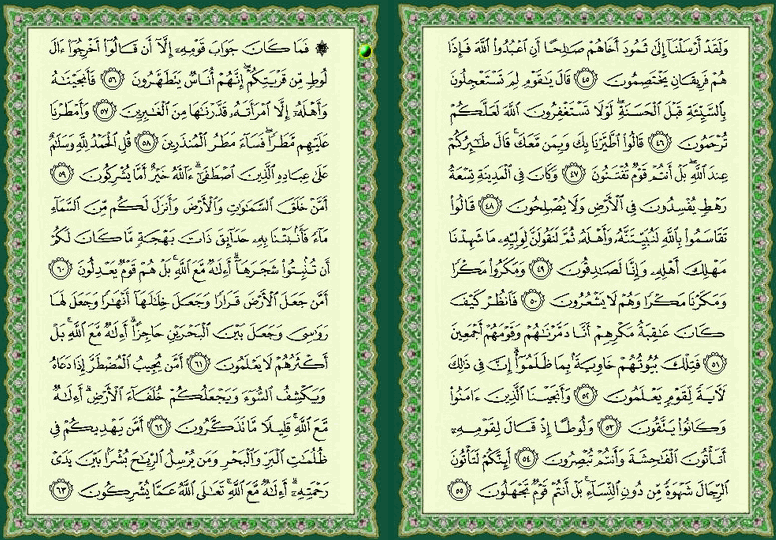 وَلَقَدْ أَرْسَلْنَا إِلَىٰ ثَمُودَ أَخَاهُمْ صَالِحًا أَنِ اعْبُدُوا اللَّهَ فَإِذَا
هُمْ فَرِيقَانِ يَخْتَصِمُونَ ٤٥ قَالَ يَا قَوْمِ لِمَ تَسْتَعْجِلُونَ
بِالسَّيِّئَةِ قَبْلَ الْحَسَنَةِ لَوْلَا تَسْتَغْفِرُونَ اللَّهَ لَعَلَّكُمْ
تُرْحَمُونَ ٤٦ قَالُوا اطَّيَّرْنَا بِكَ وَبِمَن مَّعَكَ قَالَ طَائِرُكُمْ
عِندَ اللَّهِ بَلْ أَنتُمْ قَوْمٌ تُفْتَنُونَ ٤٧ وَكَانَ فِي الْمَدِينَةِ تِسْعَةُ
رَهْطٍ يُفْسِدُونَ فِي الْأَرْضِ وَلَا يُصْلِحُونَ ٤٨ قَالُوا
تَقَاسَمُوا بِاللَّهِ لَنُبَيِّتَنَّهُ وَأَهْلَهُ ثُمَّ لَنَقُولَنَّ لِوَلِيِّهِ مَا شَهِدْنَا
مَهْلِكَ أَهْلِهِ وَإِنَّا لَصَادِقُونَ ٤٩ وَمَكَرُوا مَكْرًا
وَمَكَرْنَا مَكْرًا وَهُمْ لَا يَشْعُرُونَ ٥٠ فَانظُرْ كَيْفَ
كَانَ عَاقِبَةُ مَكْرِهِمْ أَنَّا دَمَّرْنَاهُمْ وَقَوْمَهُمْ أَجْمَعِينَ
٥١ فَتِلْكَ بُيُوتُهُمْ خَاوِيَةً بِمَا ظَلَمُوا إِنَّ فِي ذَٰلِكَ
لَآيَةً لِّقَوْمٍ يَعْلَمُونَ ٥٢ وَأَنجَيْنَا الَّذِينَ آمَنُوا
وَكَانُوا يَتَّقُونَ ٥٣ وَلُوطًا إِذْ قَالَ لِقَوْمِهِ
أَتَأْتُونَ الْفَاحِشَةَ وَأَنتُمْ تُبْصِرُونَ ٥٤ أَئِنَّكُمْ لَتَأْتُونَ
الرِّجَالَ شَهْوَةً مِّن دُونِ النِّسَاءِ بَلْ أَنتُمْ قَوْمٌ تَجْهَلُونَ ٥٥
۞ فَمَا كَانَ جَوَابَ قَوْمِهِ إِلَّا أَن قَالُوا أَخْرِجُوا آلَ
لُوطٍ مِّن قَرْيَتِكُمْ إِنَّهُمْ أُنَاسٌ يَتَطَهَّرُونَ ٥٦ فَأَنجَيْنَاهُ
وَأَهْلَهُ إِلَّا امْرَأَتَهُ قَدَّرْنَاهَا مِنَ الْغَابِرِينَ ٥٧ وَأَمْطَرْنَا
عَلَيْهِم مَّطَرًا فَسَاءَ مَطَرُ الْمُنذَرِينَ ٥٨ قُلِ الْحَمْدُ لِلَّهِ وَسَلَامٌ
عَلَىٰ عِبَادِهِ الَّذِينَ اصْطَفَىٰ آللَّهُ خَيْرٌ أَمَّا يُشْرِكُونَ ٥٩
أَمَّنْ خَلَقَ السَّمَاوَاتِ وَالْأَرْضَ وَأَنزَلَ لَكُم مِّنَ السَّمَاءِ
مَاءً فَأَنبَتْنَا بِهِ حَدَائِقَ ذَاتَ بَهْجَةٍ مَّا كَانَ لَكُمْ
أَن تُنبِتُوا شَجَرَهَا أَإِلَٰهٌ مَّعَ اللَّهِ بَلْ هُمْ قَوْمٌ يَعْدِلُونَ ٦٠
أَمَّن جَعَلَ الْأَرْضَ قَرَارًا وَجَعَلَ خِلَالَهَا أَنْهَارًا وَجَعَلَ لَهَا
رَوَاسِيَ وَجَعَلَ بَيْنَ الْبَحْرَيْنِ حَاجِزًا أَإِلَٰهٌ مَّعَ اللَّهِ بَلْ
أَكْثَرُهُمْ لَا يَعْلَمُونَ ٦١ أَمَّن يُجِيبُ الْمُضْطَرَّ إِذَا دَعَاهُ
وَيَكْشِفُ السُّوءَ وَيَجْعَلُكُمْ خُلَفَاءَ الْأَرْضِ أَإِلَٰهٌ
مَّعَ اللَّهِ قَلِيلًا مَّا تَذَكَّرُونَ ٦٢ أَمَّن يَهْدِيكُمْ فِي
ظُلُمَاتِ الْبَرِّ وَالْبَحْرِ وَمَن يُرْسِلُ الرِّيَاحَ بُشْرًا بَيْنَ يَدَيْ
رَحْمَتِهِ أَإِلَٰهٌ مَّعَ اللَّهِ تَعَالَى اللَّهُ عَمَّا يُشْرِكُونَ ٦٣